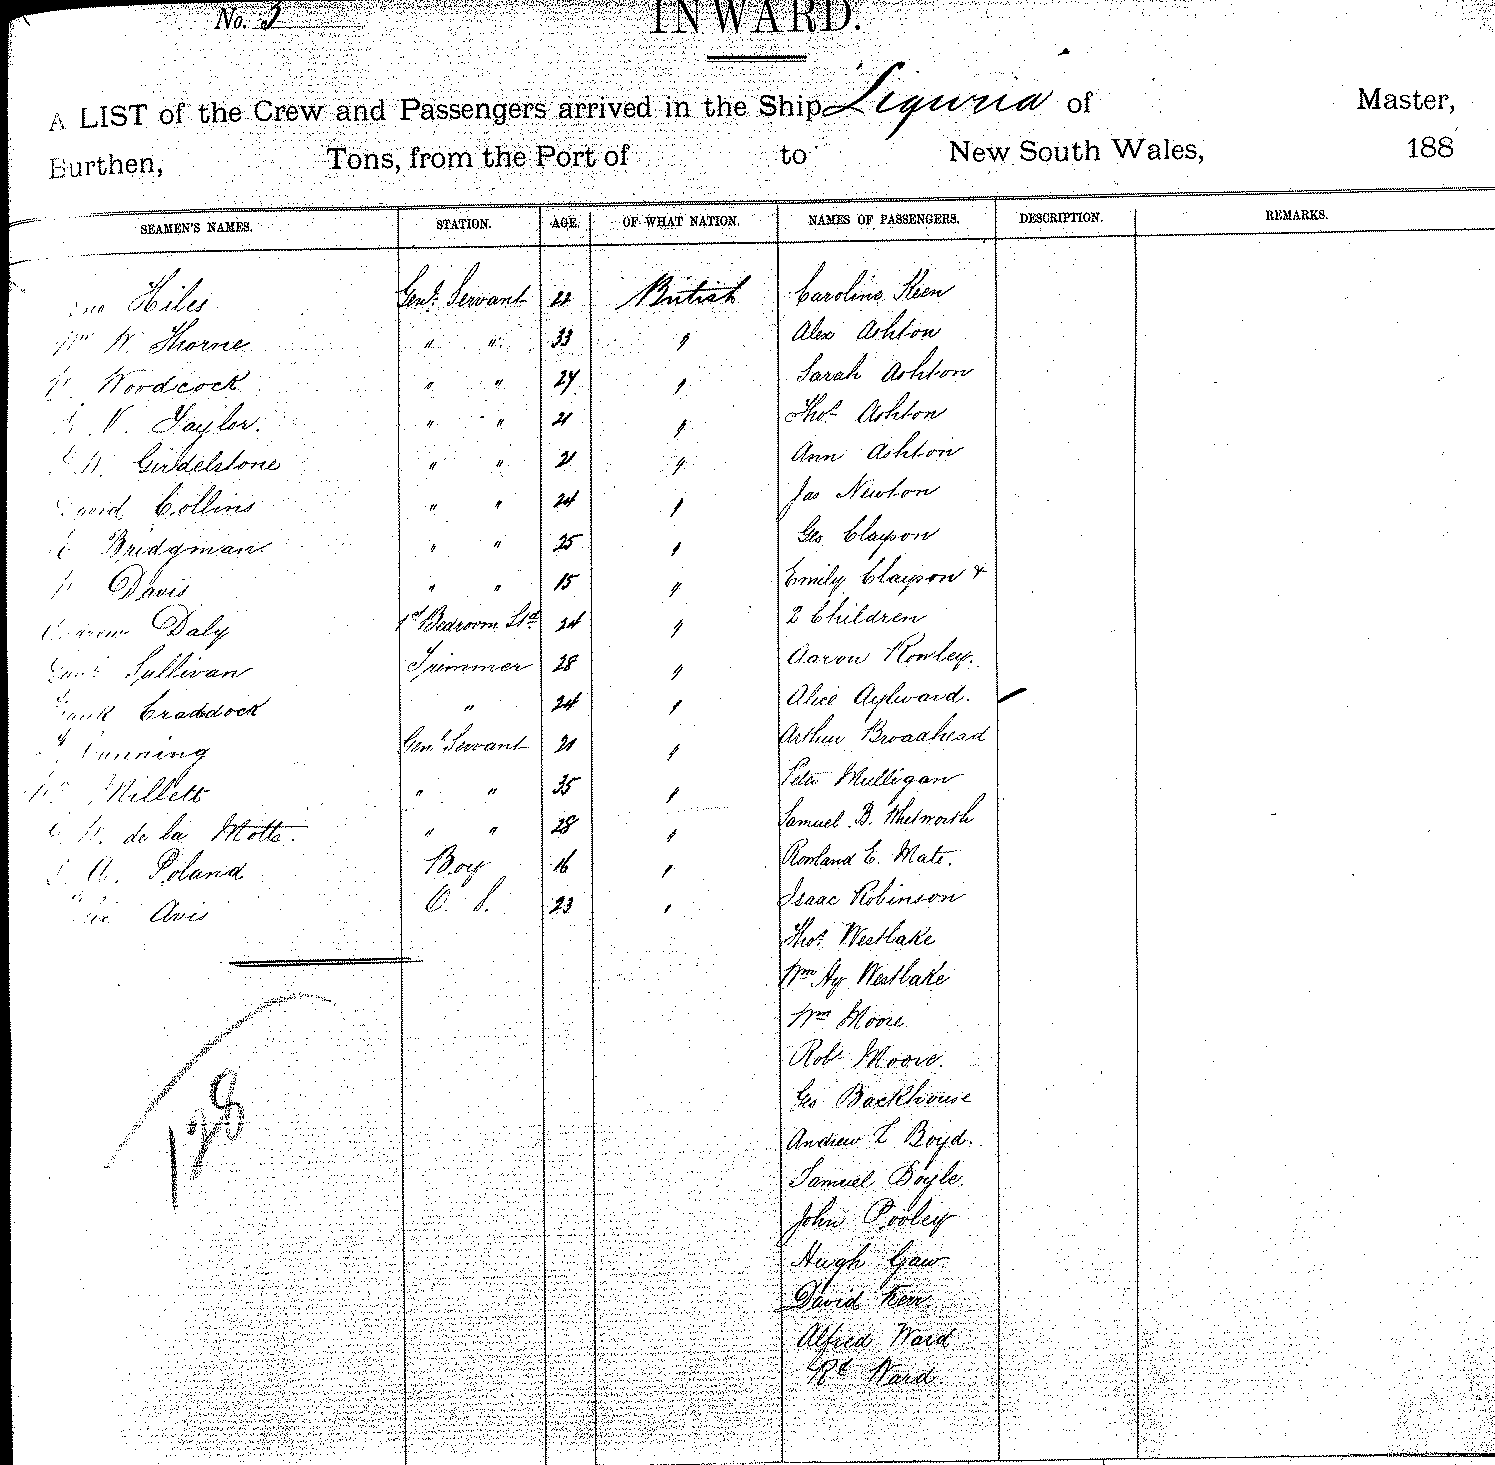 No. 3
INWARD.
A LIST of the Crew and Passengers arrived in the Ship Liguria of Master,
Burthen, Tons, from the Port of to New South Wales, 188
SEAMEN'S NAMES. STATION. AGE. OF WHAT NATION. NAMES OF PASSENGERS. DESCRIPTION. REMARKS.
Hiles Genl. Servant 22 British Caroline Keen
W. Thorne " " 33 " Alex Ashton
Woodcock " " 24 " Sarah Ashton
Taylor. " " 21 " Thos. Ashton
Girdelstone " " 21 " Ann Ashton
Collins " " 24 " Jas Newton
Bridgman " " 25 " Geo Clayson
Davis " " 15 " Emily Clayson &
Daly 1st Bedroom Std 24 " 2 Children
Sullivan Trimmer 28 " Aaron Rowley.
Craddock " 24 " Alice Aylward.
Genl Servant 21 " Arthur Broadhead
Millett " " 35 " Peter Mulligan
de la Motte. " " 28 " Samuel B. Whitworth
A. Poland Boy 16 " Rowland E. Mate.
Avis O. S. 23 " Isaac Robinson
Thos. Westlake
Wm Hy Westlake
Wm Moore
Robt Moore.
Geo Backhouse
Andrew L Boyd.
Samuel Doyle.
John Pooley
Hugh Gaw
David Kerr
Alfred Ward
Rd Ward
128